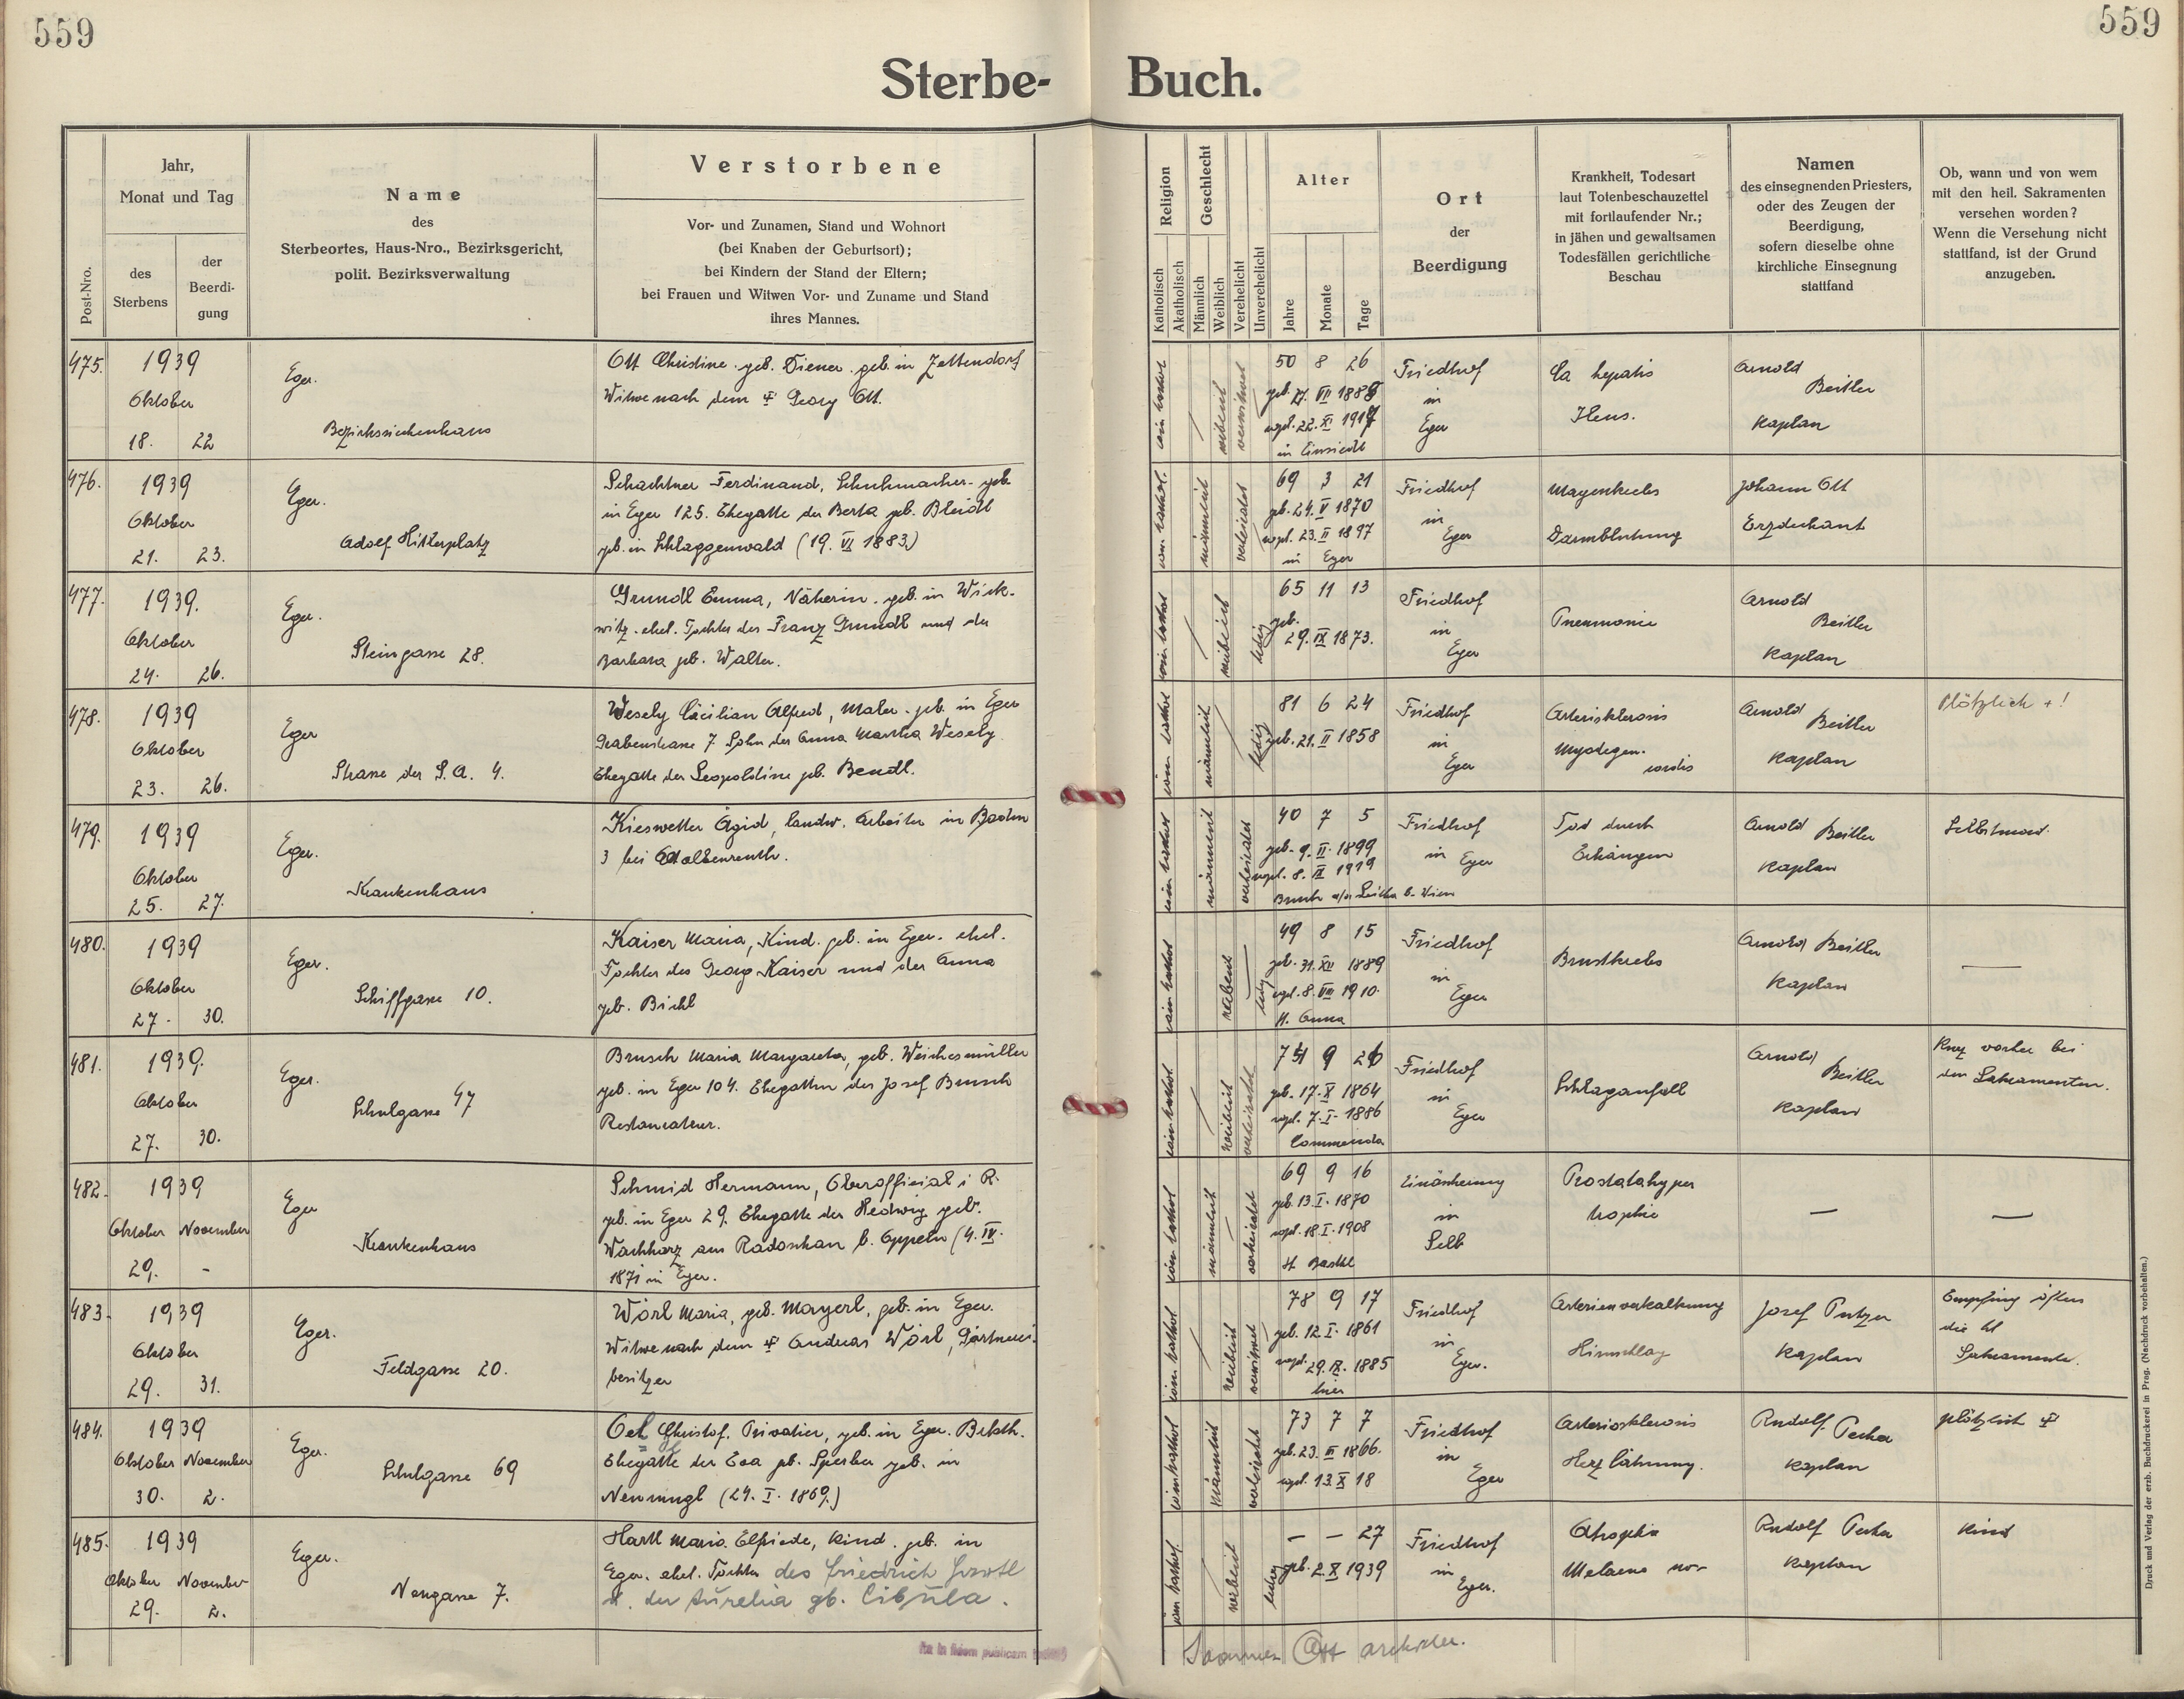 559
559
Sterbe- Buch.
Post-Nro.
Jahr,
Monat und Tag
des
Sterbens
der
Beerdi-
gung
Name
des
Sterbeortes, Haus-Nro., Bezirksgericht,
polit. Bezirksverwaltung
Verstorbene
Vor- und Zunamen, Stand und Wohnort
(bei Knaben der Geburtsort);
bei Kindern der Stand der Eltern;
bei Frauen und Witwen Vor- und Zuname und Stand
ihres Mannes.
Religion
Katholisch
Akatholisch
Geschlecht
Männlich
Weiblich
Verehelicht
Unverehelicht
Alter
Jahre
Monate
Tage
Ort
der
Beerdigung
Krankheit, Todesart
laut Totenbeschauzettel
mit fortlaufender Nr.;
in jähen und gewaltsamen
Todesfällen gerichtliche
Beschau
Namen
des einsegnenden Priesters,
oder des Zeugen der
Beerdigung,
sofern dieselbe ohne
kirchliche Einsegnung
stattfand
Ob, wann und von wem
mit den heil. Sakramenten
versehen worden?
Wenn die Versehung nicht
stattfand, ist der Grund
anzugeben.
475.
1939
Oktober
18. 22
Eger.
Bezirkssiechenhaus
Ott Christine geb. Diener. geb. in Zettendorf
Witwe nach dem Georg Ott.
röm kathol
weiblich
verwitwet
50 8 26
geb. VII
vogl. 22. XI
in Einsiedl
Friedhof
in
Eger
Ca hepatis
Ileus.
Arnold
Beitler
Kaplan
476.
1939
Oktober
21. 23.
Eger.
Adolf Hitlerplatz
Schachtner Ferdinand, Schuhmacher. geb.
in Eger 125. Ehegatte der Berta geb. Bleidl
geb. in Schlaggenwald (19. VI 1883.)
röm. kathol.
männlich
verheiratet
69 3 21
geb. 24. V 1870
vogl. 23. II 1897
in Eger
Friedhof
in
Eger
Magenkrebs
Darmblutung
Johann Ott
Erzdechant
477.
1939.
Oktober
24. 26.
Eger.
Steingasse 28.
Grundl Emma, Näherin. geb. in Wick-
witz. ehel. Tochter des Franz Grundl und der
Barbara geb. Walter.
röm kathol
weiblich
ledig
65 11 13
geb.
29. IX 1873.
Friedhof
in
Eger
Pneumonie
Arnold
Beitler
Kaplan
478.
1939
Oktober
23. 26.
Eger
Strasse der S.A. 4.
Wesely Cäcilian Alfred, Maler. geb. in Eger
Grabenstrasse 7 Sohn der Anna Martha Wesely
Ehegatte der Leopoldine geb. Bendl.
röm kathol
männlich
ledig
81 6 24
geb. 21. II 1858
Friedhof
in
Eger
Arterisklerosis
Myodegen.
cordis
Arnold
Beitler
Kaplan
Plötzlich +!
479.
1939
Oktober
25. 27.
Eger.
Krankenhaus
Kieswetter Ägid, landw. Arbeiter in Boden
3 bei
röm kathol
männlich
verheiratet
40 7 5
geb. 9. II. 1899
vogl. 8. IX 1919
Bruck a/a Leitha b. Wien
Friedhof
in Eger
Tod durch
Erhängen
Arnold Beitler
Kaplan
Selbstmord.
480.
1939
Oktober
27. 30.
Eger.
Schiffgasse 10.
Kaiser Maria, Kind. geb. in Eger. ehel.
Tochter des Georg Kaiser und der Anna
geb. Bichl
röm kathol
ledig
49 8 15
geb. 31. XII 1889
vogl. 8. VIII 1910.
St. Anna
Friedhof
in
Eger
Brustkrebs
Arnold Beitler
Kaplan
—
481.
1939.
Oktober
27. 30.
Eger.
Schulgasse 47
Brusch Maria Margareta, geb. Weichesmüller
geb. in Eger 104. Ehegattin des Josef Brusch
Restaurateur.
röm kathol
weiblich
verheiratet
9
geb. 17. X 1864
vogl. 7. I. 1886
Commenda
Friedhof
in
Eger
Schlaganfall
Arnold
Beitler
Kaplan
Kurz vorher bei
den Sakramenten.
482.
1939
Oktober November
29. -
Eger
Krankenhaus
Schmid Hermann, Oberoffizial i R.
geb. in Eger 29. Ehegatte der Hedwig geb.
Wachharz aus Radoschau b. Oppeln (4. IV.
1871 in Eger.
röm kathol
männlich
verheiratet
69 9 16
geb. 13. I. 1870
vogl. 18. I. 1908
St Barthl
Einäscherung
in
Selb
Prostatahyper
trophie
—
—
483.
1939
Oktober
29. 31.
Eger.
Feldgasse 20.
Wörl Maria, geb. Mayerl, geb. in Eger.
Witwe nach dem Andreas Wörl, Gärtnerei-
besitzer
röm. kathol
weiblich
verwitwet
78 9 17
geb. 12. I. 1861
vogl. 29. IX. 1885
hier
Friedhof
in
Eger.
Arterienverkalkung
Hirnschlag
Josef Putzer
Kaplan
Empfing öfters
die hl
Sakramente.
484.
1939
Oktober November
30. 2.
Eger.
Schulgasse 69
Christof. Privatier, geb. in Eger.
Ehegatte der Eva geb. Sperber geb. in
(24. I. 1869.)
röm kathol
männlich
verheiratet
73 7 7
geb. 23. III 1866.
vogl. 13. X 18
Friedhof
in
Eger
Arteriosklerosis
Herzlähmung.
Rudolf Pecka
Kaplan
plötzlich
485.
1939
Oktober November
29. 2.
Eger.
Neugasse 7.
Hartl Maria Elfriede, Kind. geb. in
Eger. ehel. Tochter des Friedrich Hartl
u. der Aurelia gb. Cibula.
röm kathol.
weiblich
ledig
— — 27
geb. 2. X 1939
Friedhof
in
Eger.
Atrophie
Melaena
Rudolf Pecka
Kaplan
Kind
Joannes Ott archidec.
Druck und Verlag der erzb. Buchdruckerei in Prag. (Nachdruck vorbehalten.)